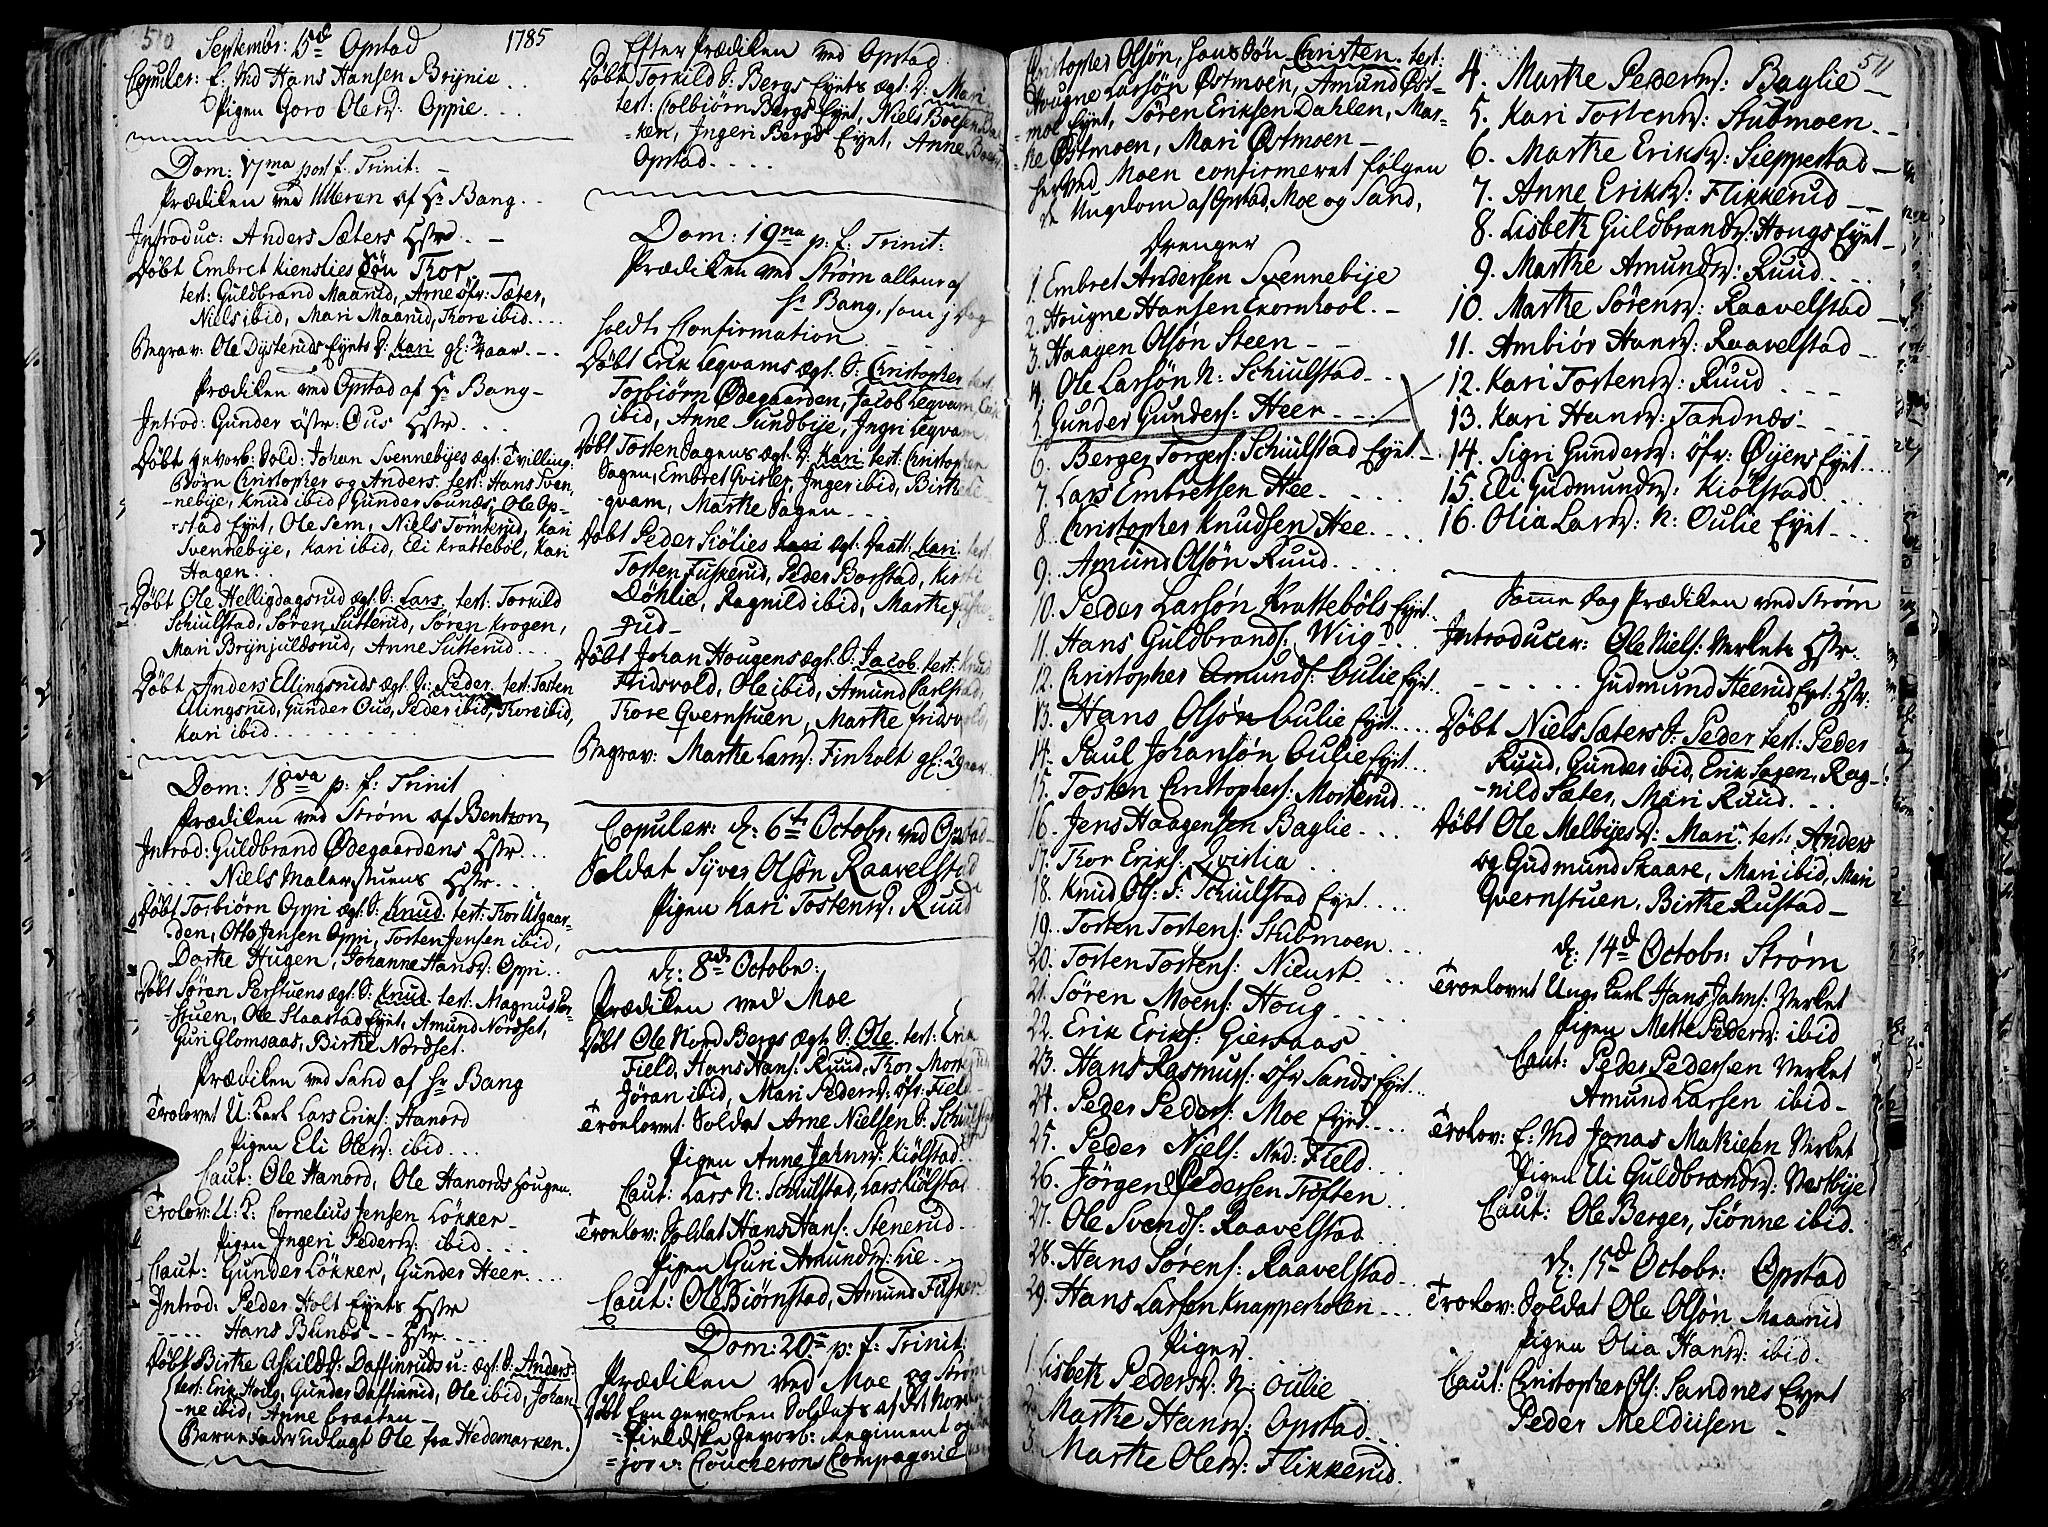 510
Septembr: 15d Opstad 1785
Copuler: E: Md Hans Hansen Brÿnie
Pigen Goro Olesd: Oppie
Dom: 17ma post f. Trinit:
Prædiken ved Ulleren af Hr Bang
Introduc: Anders Sæters Hstr
Døbt Embret Kiensties Søn Thor
test: Guldbrand Maarud, Arne øfr: Sæter,
Niels ibid, Mari Maarud, Thore ibid
Begrav: Ole Dÿsteruds Eÿnts D: Kari gl: Aar
Prædiken ved Opstad af Hr Bang
Introd: Gunder østr: Ous Hstr
Døbt gevorb: Sold: Johan Svennebÿes ægt: Tvilling:
Børn Christopher og Anders. test: Hans Sven-
nebÿe, Knud ibid, Gunder Sounæs, Ole Op-
stad Eÿnt, Ole Sem, Niels Tömterud, Kari
Svennebÿe, Kari ibid, Eli Kratteböl, Kari
Hagen
Døbt Ole Helligdagsrud ægt. S: Lars. test: Torkild
Schiulstad, Søren Sutterud, Søren Krogen,
Mari Brÿnjuldsrud, Anne Sutterud
Døbt Anders Ellingsruds ægt S: Peder. test: Tosten
Ellingsrud, Gunder Ous, Peder ibid, Thore ibid,
Kari ibid
Dom: 18va p: f: Trinit
Prædiken ved Strøm af Bentzon
Introd: Guldbrand Ødegaardens Hstr
Niels Malerstuens Hstr
Døbt Torbiørn Oppi ægt: S: Knud. test: Thor Utgaar-
den, Otto Jensen Oppi, Tosten Jensen ibid,
Dorthe Hugen, Johanne Hansd: Oppi
Døbt Søren Perstuens ægt: S: Knud. test: Magnus Per-
stuen, Ole Slaastad Eÿnt, Amund Nordset,
Guri Glomsaas, Birthe Nordset.
Prædiken ved Sand af Hr Bang
Trolovet U: Karl Lars Eriks: Hanord
Pigen Eli Olesd: ibid
Caut: Ole Hanord, Ole Hanords Hougen.
Trolov: U: K: Cornelius Jensen Løkker
Pigen Ingeri Pedersd: ibid
Caut: Gunder Løkker, Gunder Heer
Introd: Peder Holt Eÿnts Hstr
Hans Bunes Hstr
Døbt Birthe Askildsd: Daffinruds u: ægt S: Anders
test: Erik Houg, Gunder Daffinrud, Ole ibid, Johan-
ne ibid, Anne Braaten
Barnefader udlagt Ole fra Hedemarken.
Efter Prædiken ved Opstad
Døbt Torkild S: Bergs Eÿnts ægt. D: Mari
test: Colbiørn Bergs Eÿnt, Niels Boesen Bak-
ken, Ingeri Bergs Eÿnt, Anne
Opstad
Dom: 19na p: f: Trinit:
Prædiken ved Strøm allene af
Hr Bang, som j Dag
holdt Confirmation
Døbt Erik Leqvams ægt. S: Christopher test.
Torbiørn Ødegaarden, Jacob Leqvam,
ibid, Anne Sundbÿe, Ingri Leqvam
Døbt Tosten Sagens ægt: D: Kari test: Christopher
Sagen, Embret Qvisler, Inger ibid, Birthe Le-
qvam, Marthe Sagen
Døbt Peder Siølies ægt: Daatt: Kari. test:
Tosten Fuskerud, Peder Borstad, Kirsti
Döhlie, Ragnild ibid, Marthe Fuske-
rud
Døbt Johan Hougens ægt. S: Jacob. test: Knud
Fridsvold, Ole ibid, Amund Carlstad,
Thore Qvernstuen, Marthe Fridsvold,
Begrav: Marthe Larsd: Finholt gl: Aar
Copuler: d: 6te Octobr: ved Opstad
Soldat Sÿver Olsøn Raavelstad
Pigen Kari Tostensd. Ruud
d: 8de Octobr:
Prædiken ved Moe
Døbt Ole Nord Bergs ægt: S: Ole. test: Erik
Field, Hans Hans: Ruud, Thor Morterud
Jøran ibid, Mari Pedersd: øfr: Field
Troelovet Soldat Arne Nielsen S: Schiulstad
Pigen Anne Jahnsd: Kiølstad
Caut: Lars N: Schiulstad, Lars Kiølstad
Troelov: Soldat Hans Hans: Stenerud
Pigen Guri Amundsd: Lie
Caut: Ole Biørnstad, Amund
Dom: 20de p: f: Trinit:
Prædiken ved Moe og Strøm
Døbt Een gevorben Soldats af Det Norden-
fieldske Gevorb: Regiment og
jor v: Coucherons Compagnie
511
Christopher Olsøn, hans Søn Christen. test:
Hougne Larsøn Østmoen, Amund Øst-
moe Eÿnt, Søren Eriksen Dahlen, Mar-
the Østmoen, Mari Østmoen
her ved Moen confirmeret følgen
de Ungdom af Opstad, Moe og Sand,
Drenger
1. Embret Andersen Svennebije
2. Hougne Hansen Exornhool
3. Haagen Olsøn Steen
4. Ole Larsøn N: Schiulstad
5. Gunder Gunders: Heer
6. Berger Torgers: Schiulstad Eÿnt
7. Lars Embretsen Hee
8. Christopher Knudsen Hee
9. Amund Olsøn Ruud
10. Peder Larsøn Krattebøls Eÿnt
11. Hans Guldbrands: Wiig
12. Christopher Amunds: Oulie Eÿnt
13. Hans Olsøn Oulie Eÿnt
14. Paul Johansøn Oulie Eÿnt
15. Tosten Christophers: Morterud
16. Jens Haagensen Baglie
17. Thor Eriks: Qvislia
18. Knud Ols: S: Schiulstad Eÿnt
19. Tosten Tostens: Stubmoen
20. Tosten Tostens: Nieust
21. Søren Moens: Houg
22. Erik Eriks: Giersaas
23. Hans Rasmus: øfr Sands Eÿnt
24. Peder Peders: Moe Eÿnt
25. Peder Niels: Ned: Field
26. Jørgen Pedersen Toften
27. Ole Svends: Raavelstad
28. Hans Sørens: Raavelstad
29. Hans Larsen Knapperholen
Piger
1. Lisbeth Pedersd: N: Oulie
2. Marthe Hansd: Opstad
3. Marthe Olesd: Flikkerud
4. Marthe Pedersd: Baglie
5. Kari Tostensd: Stubmoen
6. Marthe Eriksd: Sieppestad
7. Anne Eriksd: Flikkerud
8. Lisbeth Guldbrandsd: Hougs Eÿnt
9. Marthe Amundsd: Ruud
10. Marthe Sørensd: Raavelstad
11. Ambiør Hansd: Raavelstad
12. Kari Tostensd: Ruud
13. Kari Hansd: Sandnæs
14. Sigri Gundersd: Øfr: Øÿens Eÿnt
15. Eli Gudmundsd: Kiølstad
16. Olia Larsd: N: Oulie Eÿnt
Samme Dag Prædiken ved Strøm
Introducer: Ole Niels: Verkets Hstr
Gudmund Heerud Eynt: Hstr:
Døbt Niels Sæters S: Peder test: Peder
Ruud, Gunder ibid, Erik Sagen, Rag-
nild Sæter, Mari Ruud
Døbt Ole Melbÿes D: Mari test: Anders
og Gudmund Skaare, Mari ibid, Mari
Qvernstuen, Birthe Rustad
d: 14d Octobr: Strøm
Troelovet Ung Karl Hans Jahns: Verket
Pigen Mette Pedersd: ibid
Caut: Peder Pedersen Verket
Amund Larsen ibid
Trolov: E: Md Jonas Makiesen Verket
Pigen Eli Guldbrandsd: Vestbÿe
Caut: Ole Berger, Siønne ibid.
d: 15d Octobr: Opstad
Trolov: Soldat Ole Olsøn Maarud
Pigen Olia Hansd: ibid.
Caut: Christopher Ols: Sandnes Eÿnt
Peder Meldiisen